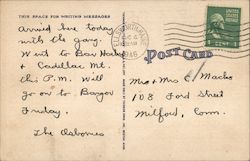 THIS SPACE FOR WRITING MESSAGES
Arrived here today
with the gang.
Went to Bar Harbor
& Cadillac Mt.
this P.M. Will
go on to Bangor
Friday.
The Osbornes
1946
POST CARD
Mr & Mrs C. Macko
108 Ford Street
Milford, Conn.